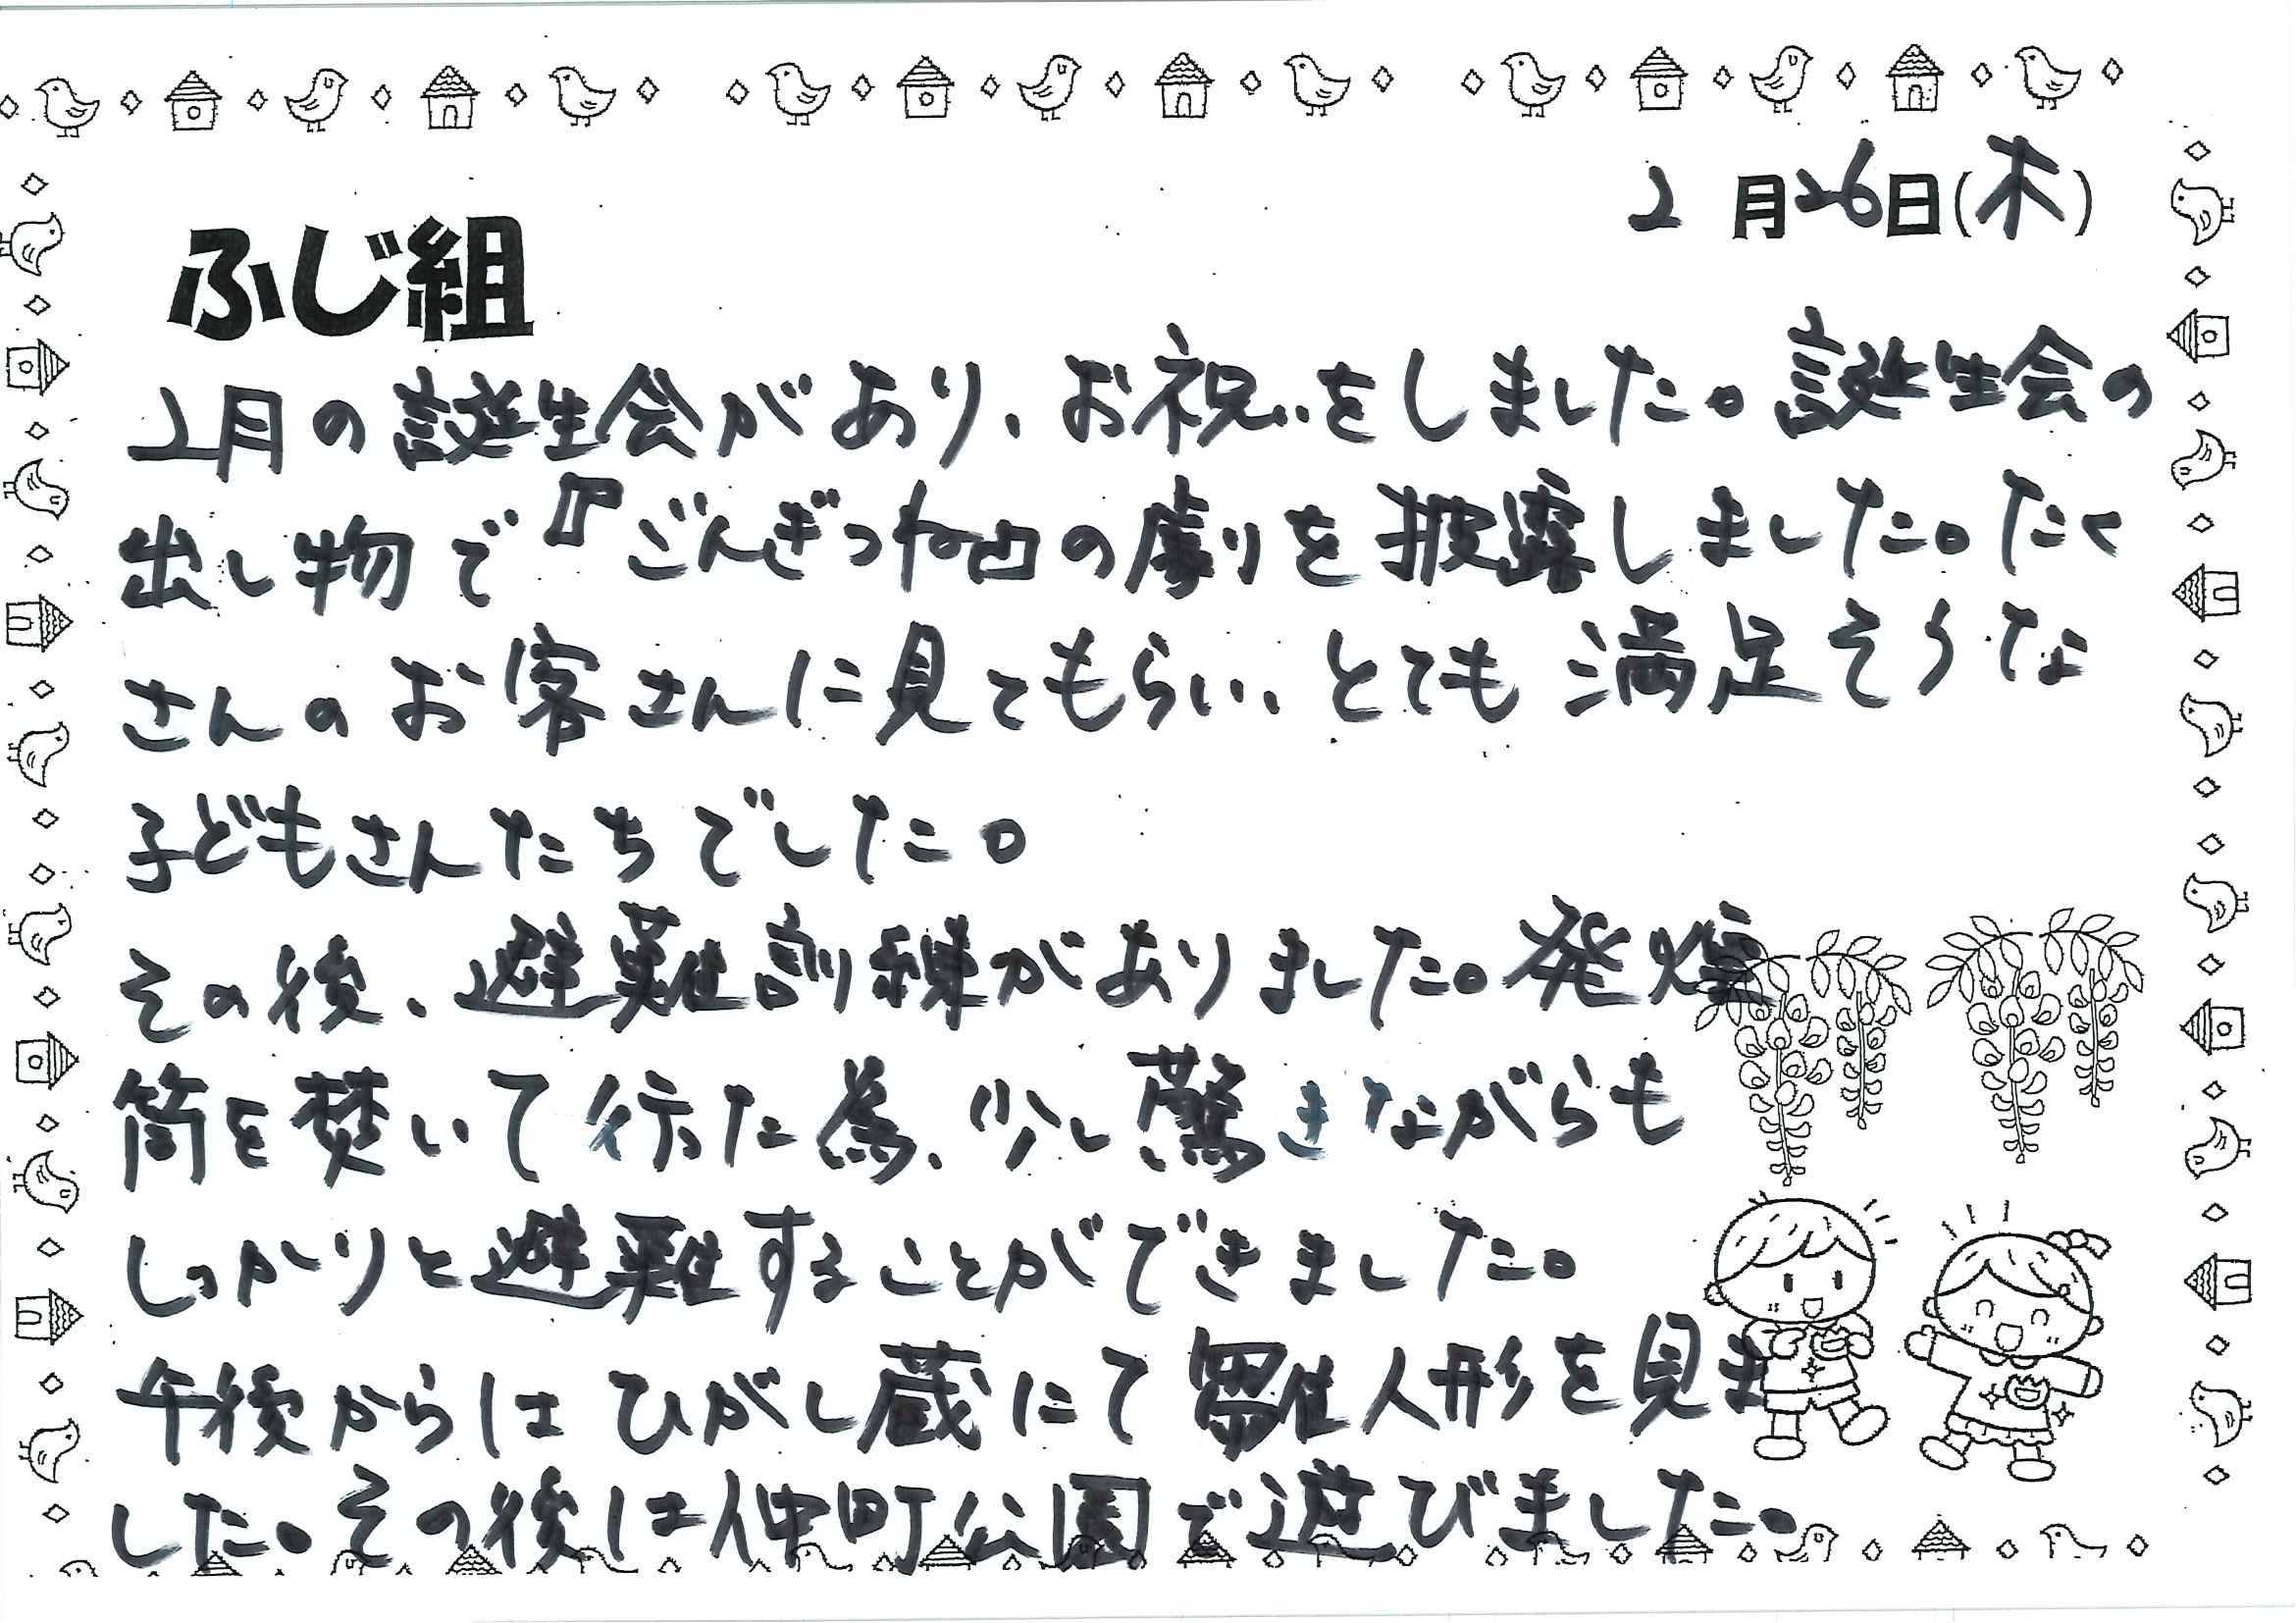 2月26日(木)
ふじ組
2月の誕生会があり、お祝いをしました。誕生会の
出し物で『ごんぎつね』の劇を披露しました。たく
さんのお客さんに見てもらい、とても満足そうな
子どもさんたちでした。
その後、避難訓練がありました。発煙
筒を焚いて行った為、少し驚きながらも
しっかりと避難することができました。
午後からはひがし蔵にて雛人形を見ま
した。その後は仲町公園で遊びました。